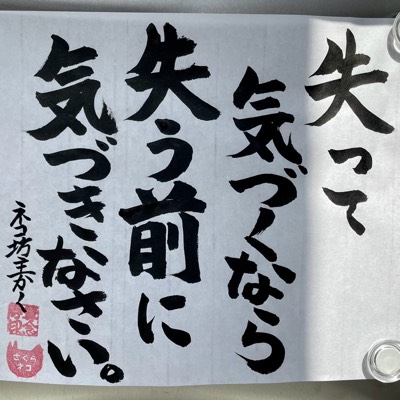 失って
気づくなら
失う前に
気づきなさい。
ネコ坊主かく
さくら
ネコ